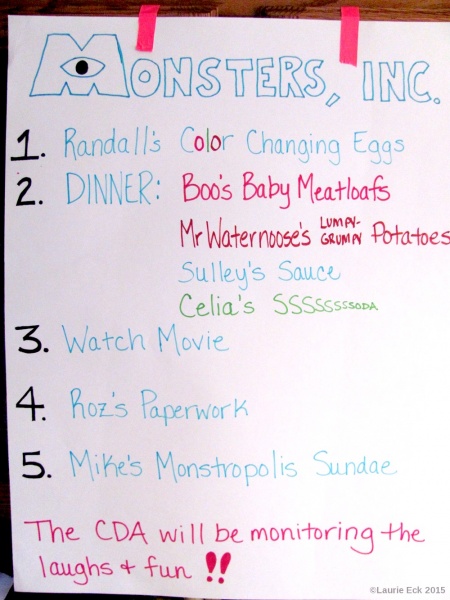 MONSTERS, INC.
1. Randall's Color Changing Eggs
2. DINNER: Boo's Baby Meatloafs
Mr Waternoose's LUMPY-GRUMPY Potatoes
Sulley's Sauce
Celia's SSSSSSSSSODA
3. Watch Movie
4. Roz's Paperwork
5. Mike's Monstropolis Sundae
The CDA will be monitoring the
laughs + fun !!
©Laurie Eck 2015